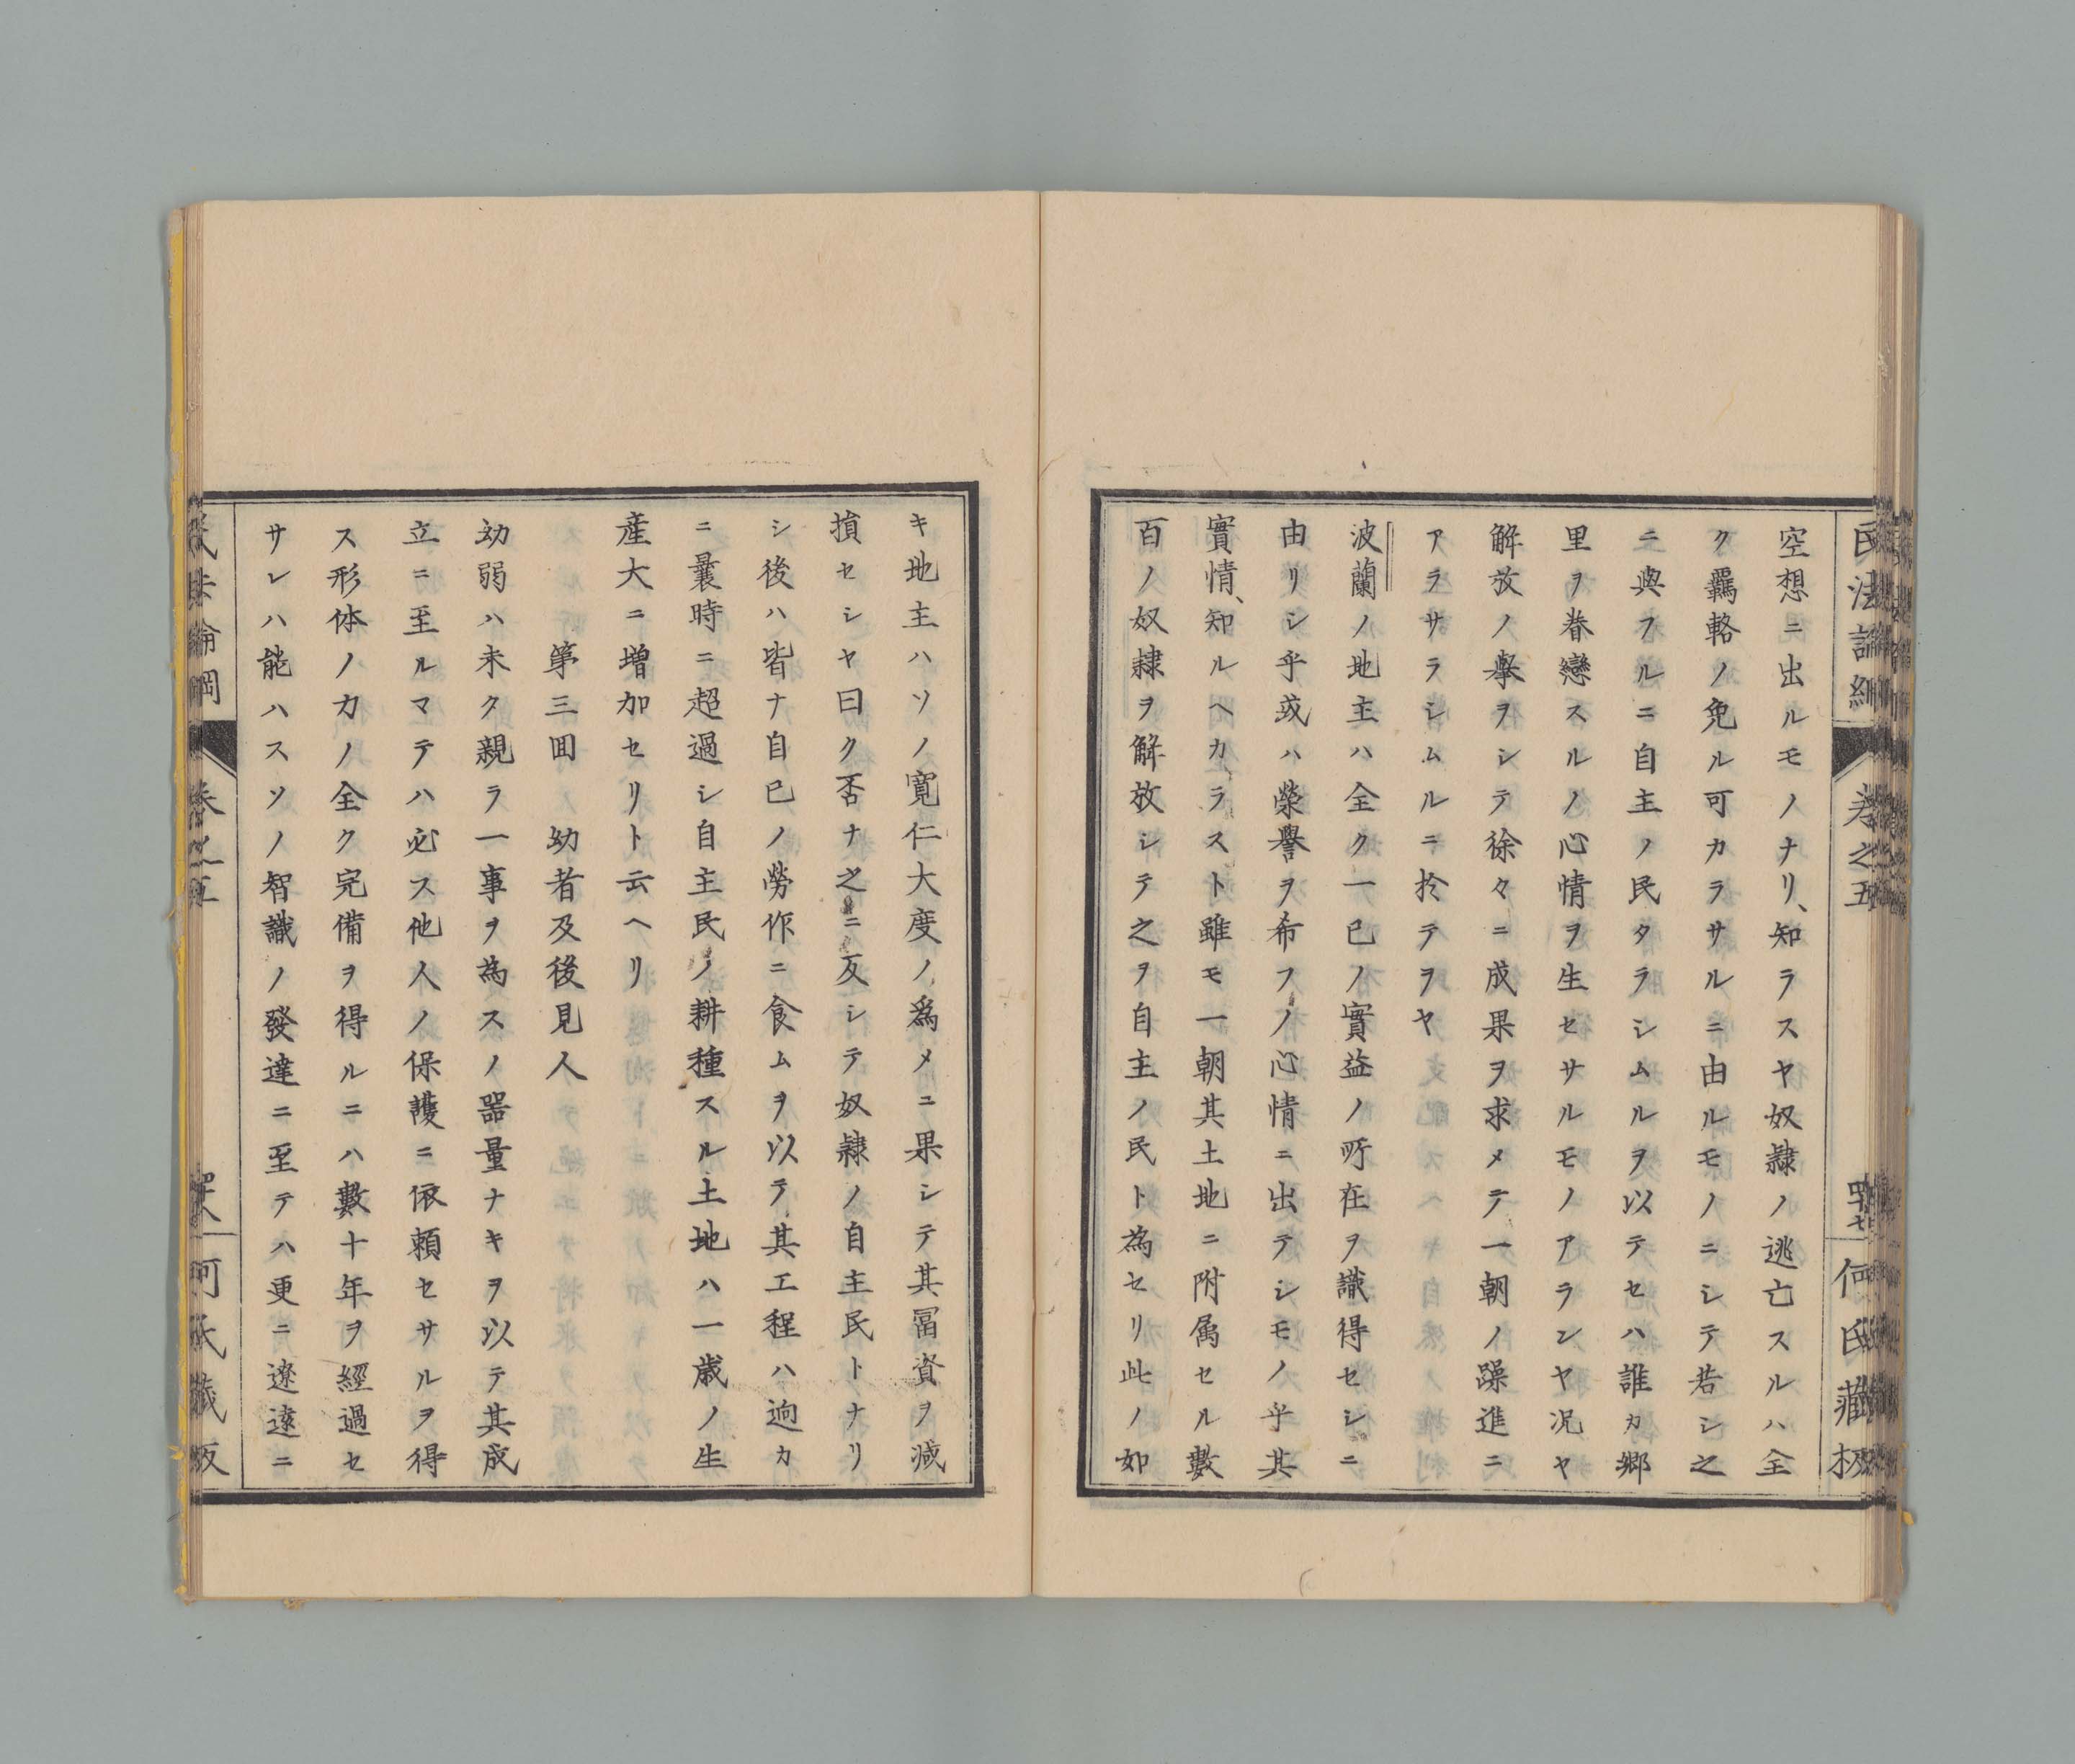 民法論綱
卷之五
何氏藏板
空想ニ出ルモノナリ、知ラスヤ奴隷ノ逃亡スルハ全
ク羈軛ノ免ル可カラサルニ由ルモノニシテ若シ之
ニ與フルニ自主ノ民タラシムルヲ以テセハ誰カ郷
里ヲ眷戀スルノ心情ヲ生セサルモノアランヤ况ヤ
解放ノ擧ヲシテ徐々ニ成果ヲ求メテ一朝ノ躁進ニ
アラサラシムルニ於テヲヤ
波蘭ノ地主ハ全ク一已ノ實益ノ所在ヲ識得セシニ
由リシ乎或ハ榮譽ヲ希フノ心情ニ出テシモノ乎其
實情、知ルヘカラスト雖モ一朝其土地ニ附属セル數
百ノ奴隷ヲ解放シテ之ヲ自主ノ民ト為セリ此ノ如
キ地主ハソノ寛仁大度ノ爲メニ果シテ其冨資ヲ减
損セシヤ曰ク否ナ之ニ反シテ奴隷ノ自主民トナリ
シ後ハ皆ナ自已ノ勞作ニ食ムヲ以テ其工程ハ逈カ
ニ曩時ニ超過シ自主民ノ耕種スル土地ハ一歳ノ生
産大ニ増加セリト云ヘリ
第三囘　幼者及後見人
幼弱ハ未ク親ラ一事ヲ為スノ器量ナキヲ以テ其成
立ニ至ルマテハ必ス他人ノ保護ニ依頼セサルヲ得
ス形体ノカノ全ク完備ヲ得ルニハ數十年ヲ經過セ
サレハ能ハスソノ智識ノ發達ニ至テハ更ニ遼遠ニ
民法論綱
卷之五
何氏藏版